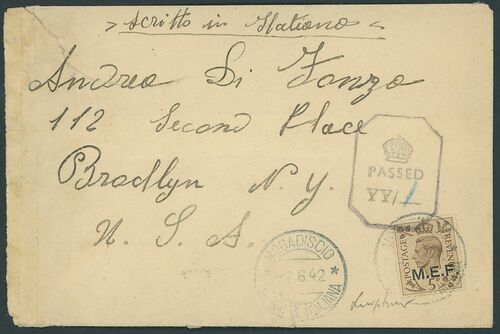 Scritto in Italiano
Andrea Di Fonzo
112 Second Place
Brodlyn N.Y.
U.S.A.
PASSED
YY/
MOGADISCIO
2.6.42
ITALIANA
POSTAGE
REVENUE
M.E.F.
5D